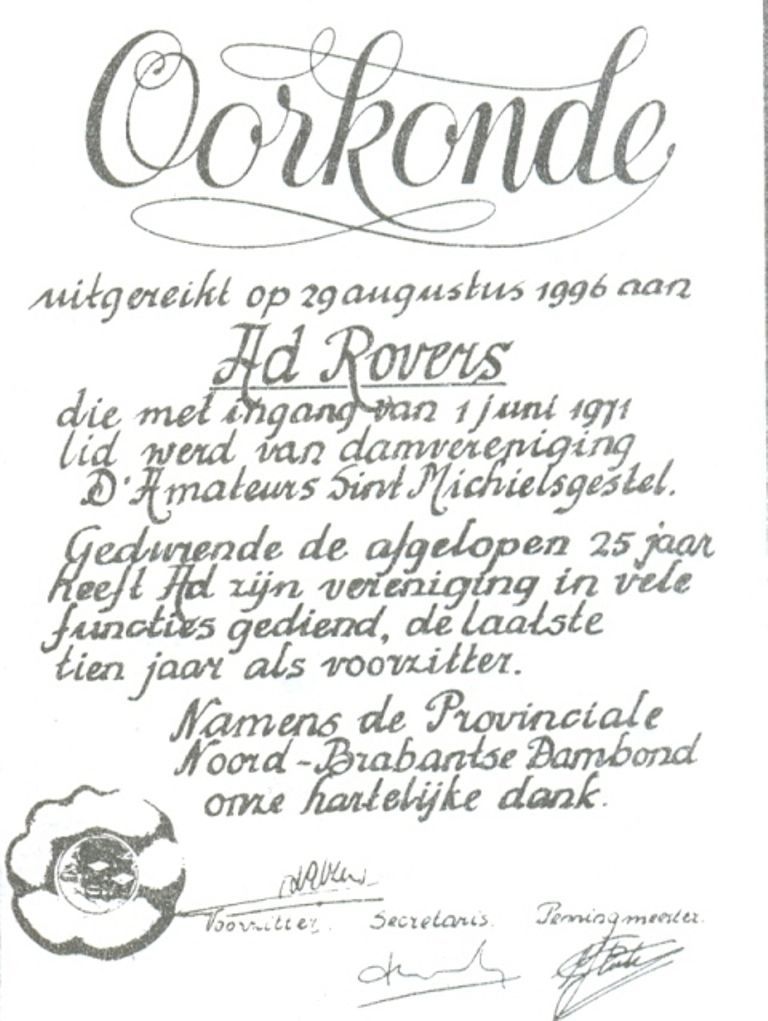 Oorkonde
uitgereikt op 29 augustus 1996 aan
Ad Rovers
die met ingang van 1 juni 1971
lid werd van damvereniging
D'Amateurs Sint Michielsgestel.
Gedurende de afgelopen 25 jaar
heeft Ad zijn vereniging in vele
functies gediend, de laatste
tien jaar als voorzitter.
Namens de Provinciale
Noord-Brabantse Dambond
onze hartelijke dank.
Voorzitter. Secretaris. Penningmeester.